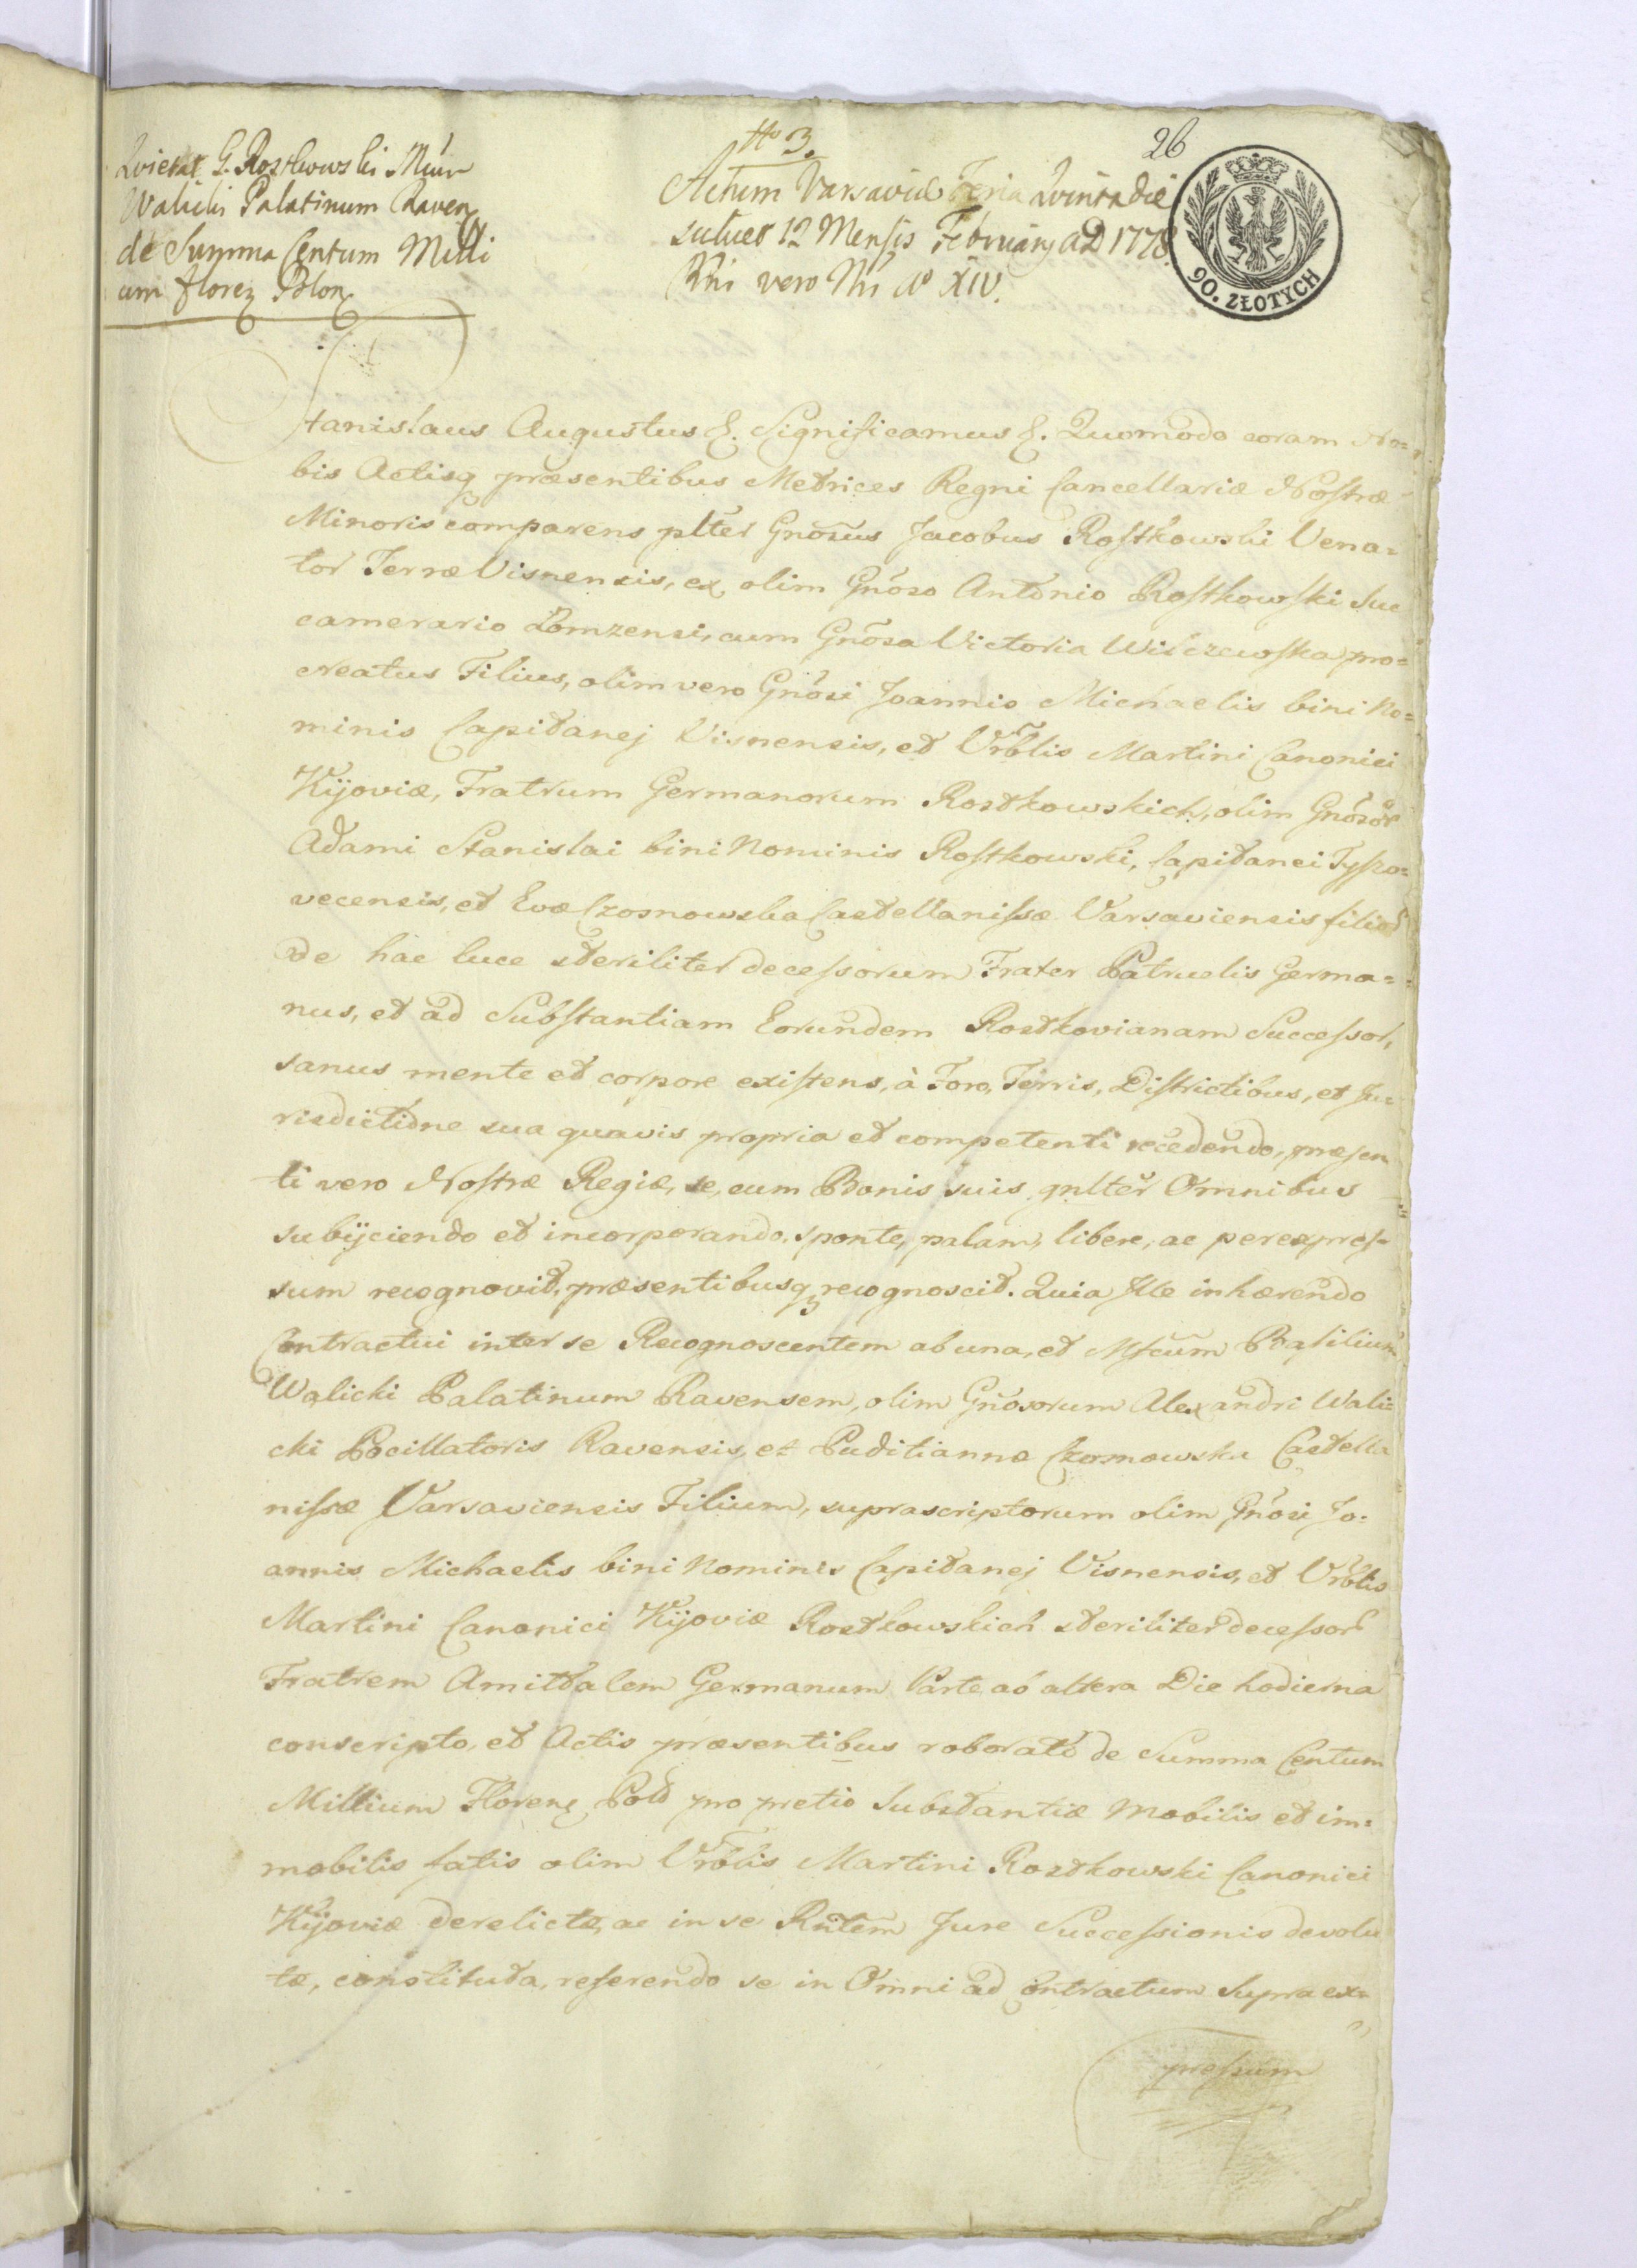 Quietat G. Rostkowski Mcum
Walicki Palatinum Raven
de Summa Centum Milli
um florez Polon
No 3.
26
Actum Varsaviæ Feria Quinta die
scilicet 12 Mensis Februarij AD 1778
Rni vero Nri Ao XIV.
90. ZŁOTYCH
Stanislaus Augustus &. Significamus &. Quomodo coram No=
bis Actisq præsentibus Metrices Regni Cancellariæ Nostræ
Minoris comparens plter Gnosus Jacobus Rostkowski Vena=
tor Terræ Visnensis, ex olim Gnoso Antonio Rostkowski Suc
camerario Lomzensi, cum Gnosa Victoria Wilczewska pro=
creatus Filius, olim vero Gnosi Joannis Michaelis bini No=
minis Capitanej Visnensis, et Vrblis Martini Canonici
Kijoviæ, Fratrum Germanorum Rostkowskich, olim Gnosor
Adami Stanislai bini Nominis Rostkowski, Capitanei Tyszo=
vecensis, et Evæ Czosnowska Castellanissæ Varsaviensis filior
de hac luce steriliter decessorum Frater Patruelis Germa=
nus, et ad Substantiam Eorundem Rostkovianam Successor,
sanus mente et corpore existens, à Foro, Terris, Districtibus, et Ju
risdictione sua quavis propria et competenti recedendo, præsen
ti vero Nostræ Regiæ, se, cum Bonis suis gnlter Omnibus
subijciendo et incorporando, sponte, palam, libere, ac per expres=
sum recognovit, præsentibusq recognoscit. Quia Ille inhærendo
Contractui inter se Recognoscentem ab una, et Mfcum Basilium
Walicki Palatinum Ravensem, olim Gnosorum Alexandri Walic
cki Pocillatoris Ravensis, et Puditiannæ Czosnowska Castella
nissæ Varsaviensis Filium, suprascriptorum olim Gnosi Jo=
annis Michaelis bini Nominis Capitanej Visnensis, et Vrblis
Martini Canonici Kijoviæ Rostkowskich steriliter decessor
Fratrem Amitalem Germanum Parte ab altera Die hodierna
conscripto, et Actis præsentibus roborato de Summa Centum
Millium Floren Pol pro pretio Substantiæ Mobilis et im=
mobilis fatis olim Vrblis Martini Rostkowski Canonici
Kijoviæ derelictæ, ac in se Rntem Jure Successionis devolu
tæ, constituta, referendo se in Omni ad Contractum supra ex=
pressum